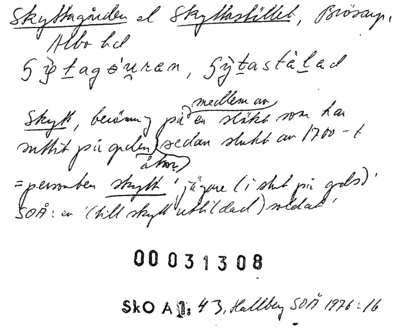 Skyttagården el Skyttastället, Brösarp,
Albo hd
Skytt, benämning på en medlem av släkt som har
suttit på gården (åtm) sedan slutet av 1700-t
= personben skytt 'jägare (i sht på gods)'
SOÅ: en '(till skytt utbildad) soldat'
00031308
SkO A 1: 43, Hallberg SOÅ 1976:16